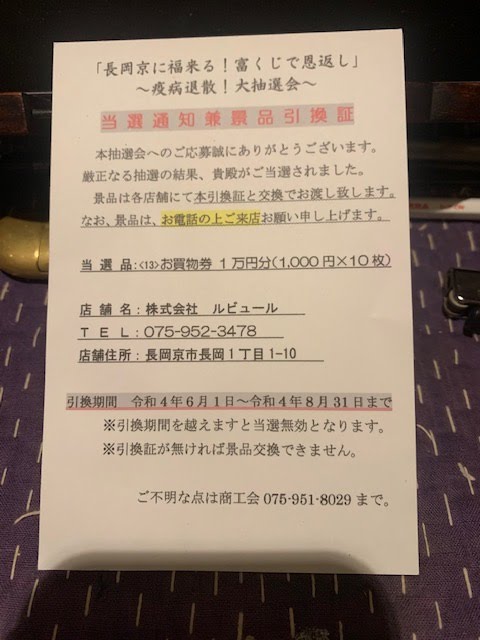 「長岡京に福来る！富くじで恩返し」
～疫病退散！大抽選会～
当選通知兼景品引換証
本抽選会へのご応募誠にありがとうございます。
厳正なる抽選の結果、貴殿がご当選されました。
景品は各店舗にて本引換証と交換でお渡し致します。
なお、景品は、お電話の上ご来店お願い申し上げます。
当選品：<13>お買物券 1万円分(1,000円×10枚)
店舗名：株式会社 ルビュール
TEL：075-952-3478
店舗住所：長岡京市長岡1丁目1-10
引換期間 令和4年6月1日～令和4年8月31日まで
※引換期間を越えますと当選無効となります。
※引換証が無ければ景品交換できません。
ご不明な点は商工会 075-951-8029 まで。